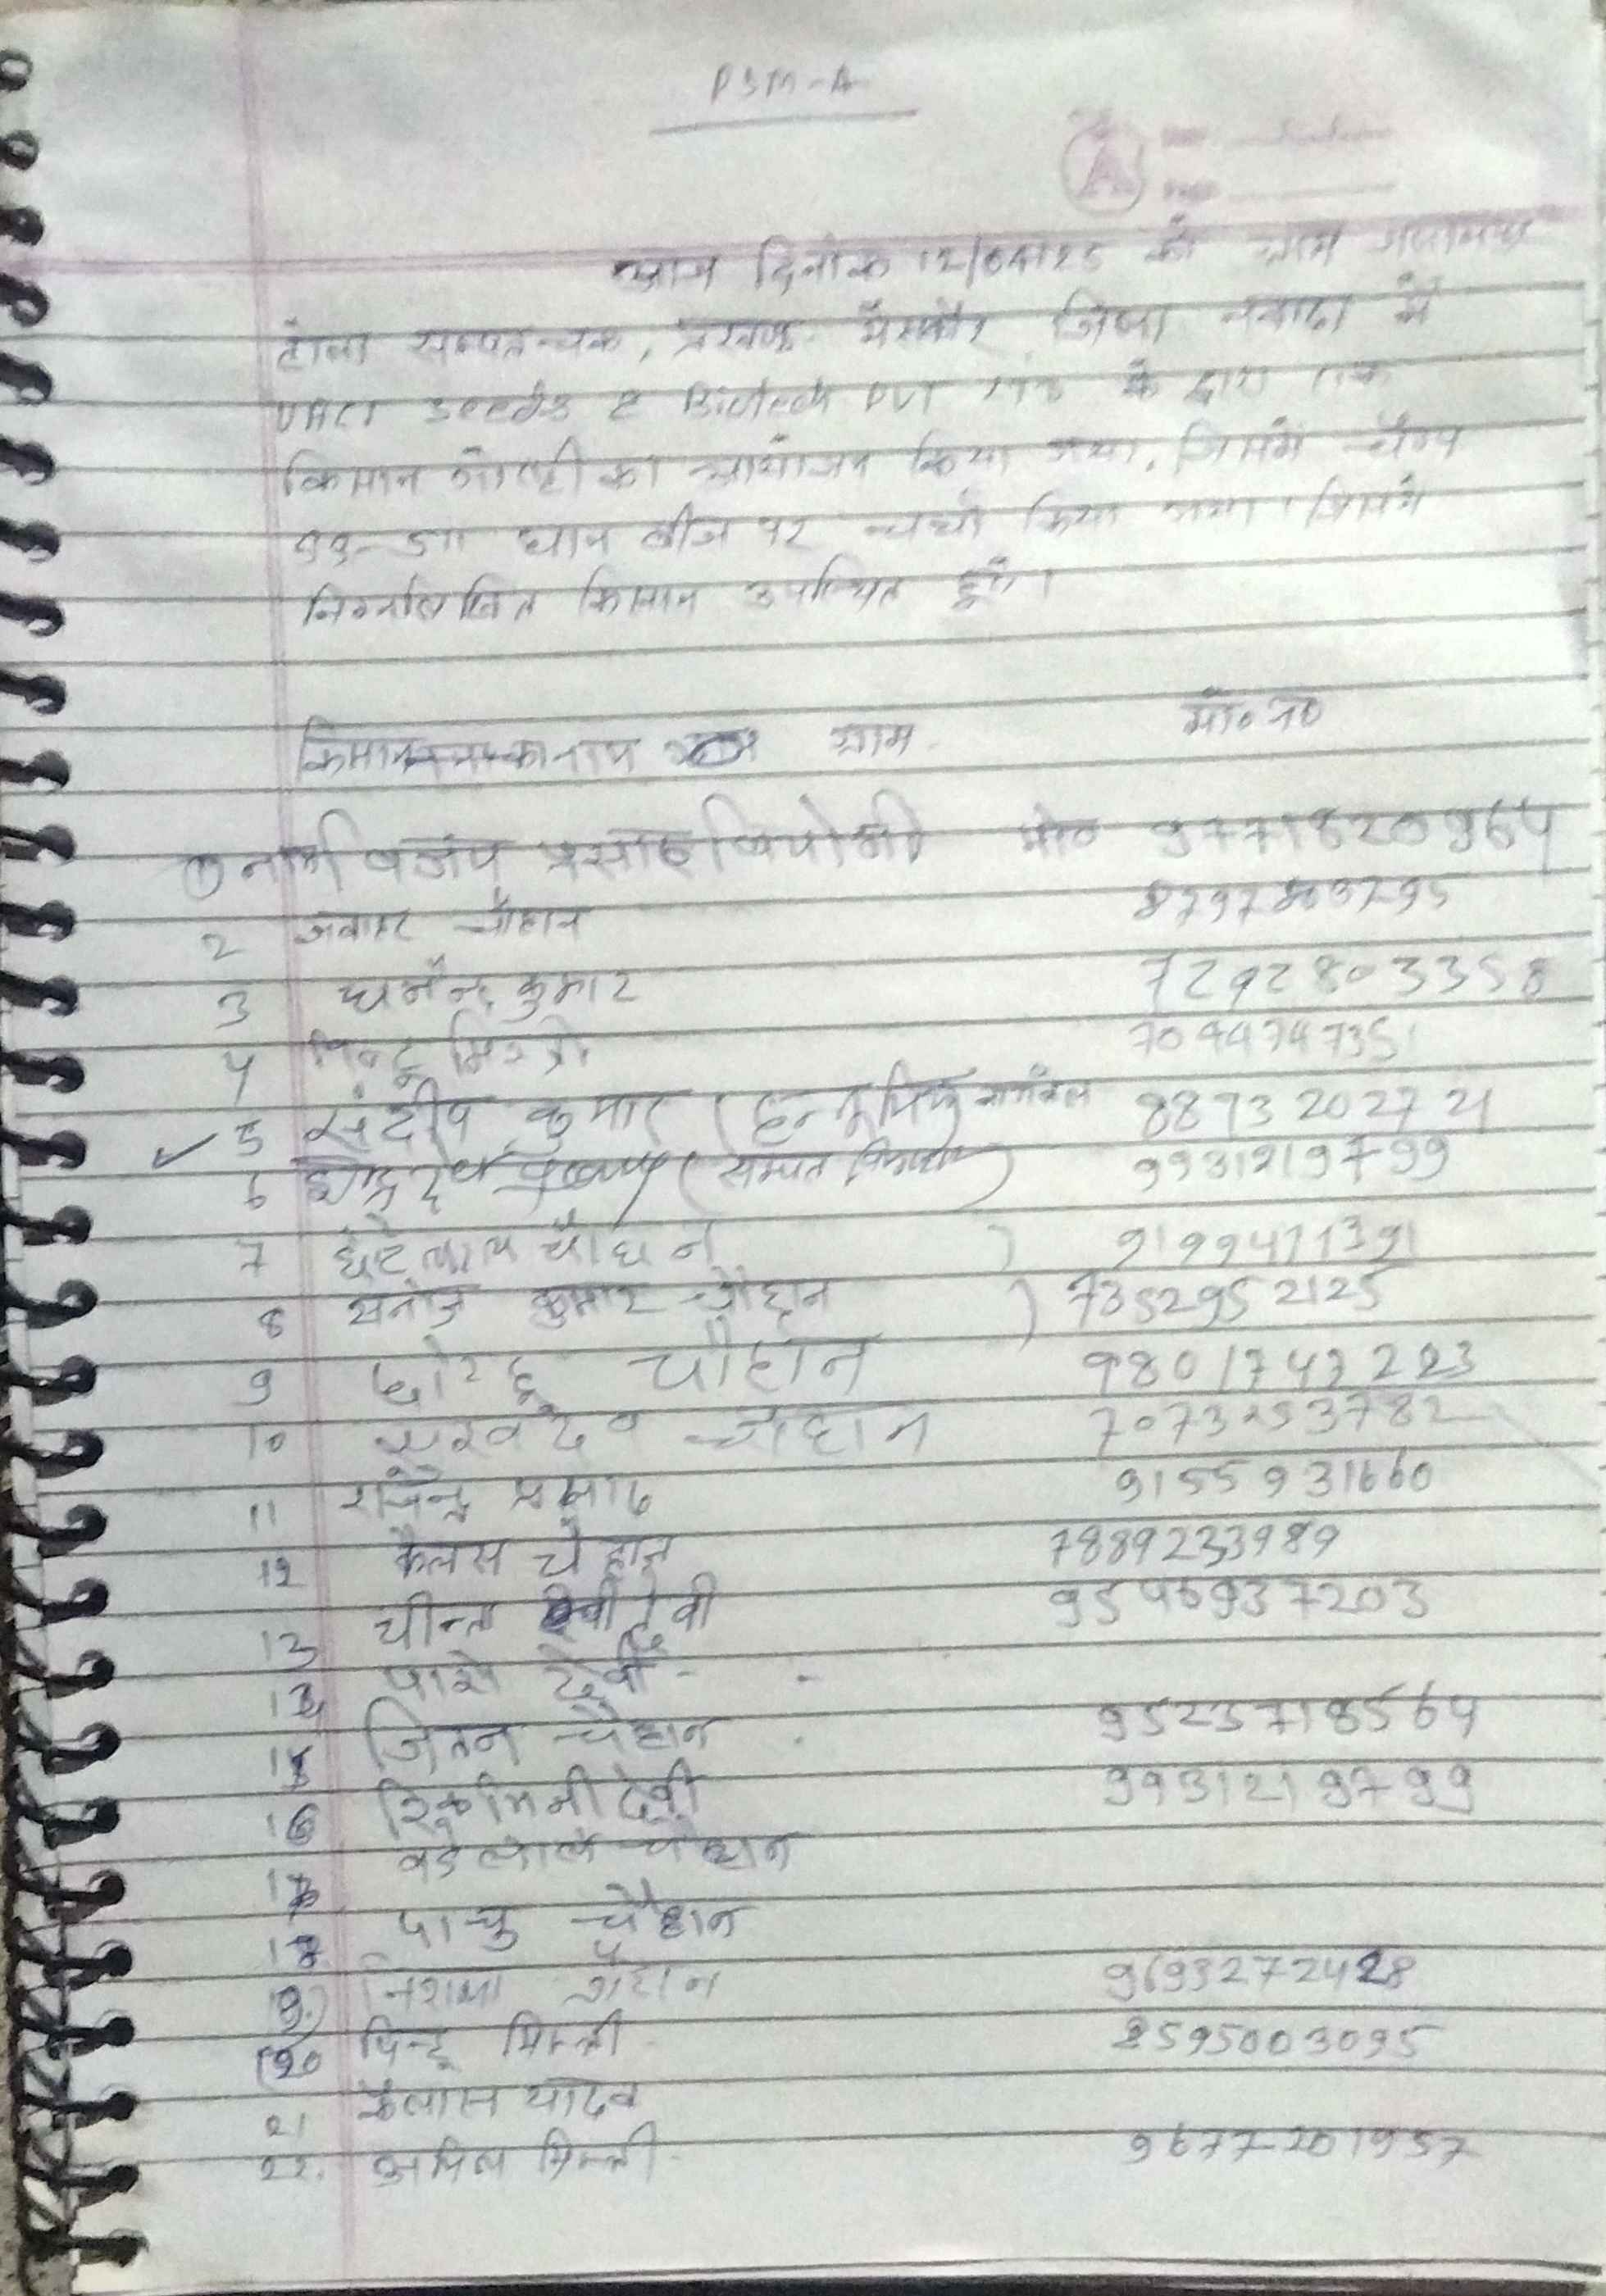 PSM-A
आज दिनांक 12/04/25 को ग्राम
टोला सम्पतचक, प्रखण्ड- मेसकौर, जिला नवादा में
Seeds & Biotech PVT LTD के द्वारा एक
किसान गोष्ठी का आयोजन किया गया, जिसमें चैम्प
99-511 धान बीज पर चर्चा किया गया। जिसमें
निम्नलिखित किसान उपस्थित हुए।
ग्राम मो० न०
① नाम विजय प्रसाद वियोगी मो० 9771820964
2 जवाहर चौहान 8797803795
3 धर्मेन्द्र कुमार 7292803358
4 मिस्त्री 7044747351
5 संदीप कुमार ( 8873202721
6 9931219799
7 छोटेलाल चौधन ) 9199411391
8 मनोज कुमार चौहान ) 7352952125
9 छोटू चौहान 9801747223
10 सुखदेव चौहान 7073253782
11 राजेन्द्र प्रसाद 9155931660
12 कैलस चौहान 7889233989
13 चीन्ता देवी 9546937203
14 पारो देवी -
15 जितन चौहान 9523718564
16 रिकमिनी देवी 9931219799
17 बडेलाल चौहान
18 पाचु चौहान
19) चौहान 9693272428
(20 पिन्टू मिस्त्री 8595003095
21 कैलास यादव
22. मिस्त्री 9677201957